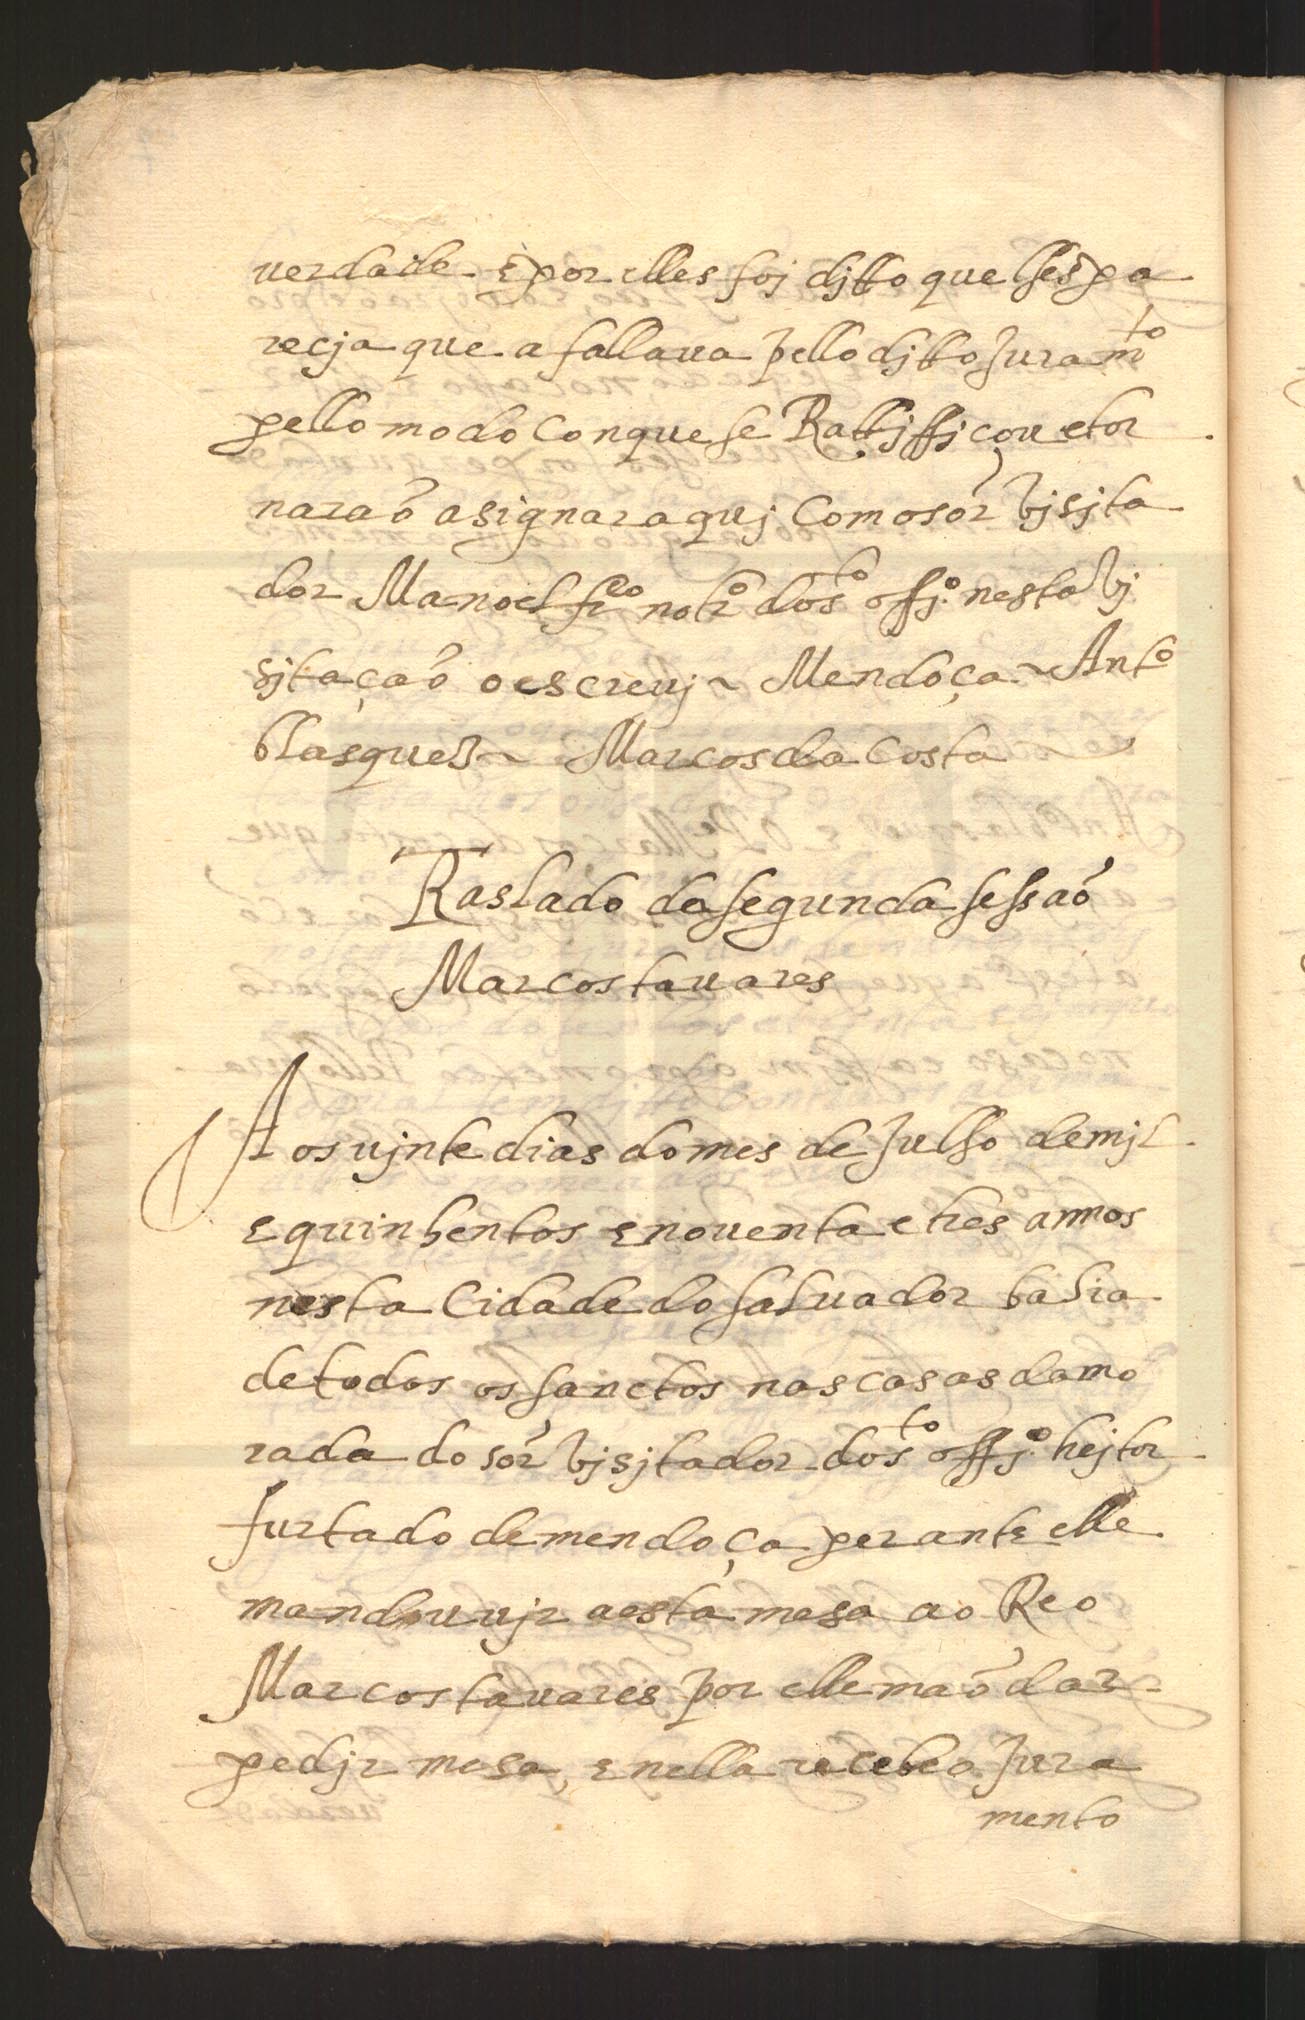 verdade. E por elles foj djtto que lhes pa
recja que a fallaua pello djtto Juramto
pello modo Conque se Rattjffjcou e tor
naraõ asignar aquj Com o sõr Vjsjta
dor Manoel frco notro do sto offjo. nesta Vj
sjtaçaõ o escreuj ~ Mendoça ~ Anto
blasquez ~ Marcos da Costa ~
Traslado da segunda sessaõ
Marcos tauares
Aos vjnte dias do mes de Julho de mjl
E quinhentos E nouenta e tres annos
nesta Cidade do saluador bahia
de todos os sanctos nas casas da mo
rada do sõr Vjsjtador do sto offjo. hejtor
furtado de mendoça perante elle
mandou vjr a esta mesa ao Reo
Marcos tauares por elle mãodar
pedjr mesa, E nella recebeo Jura
mento